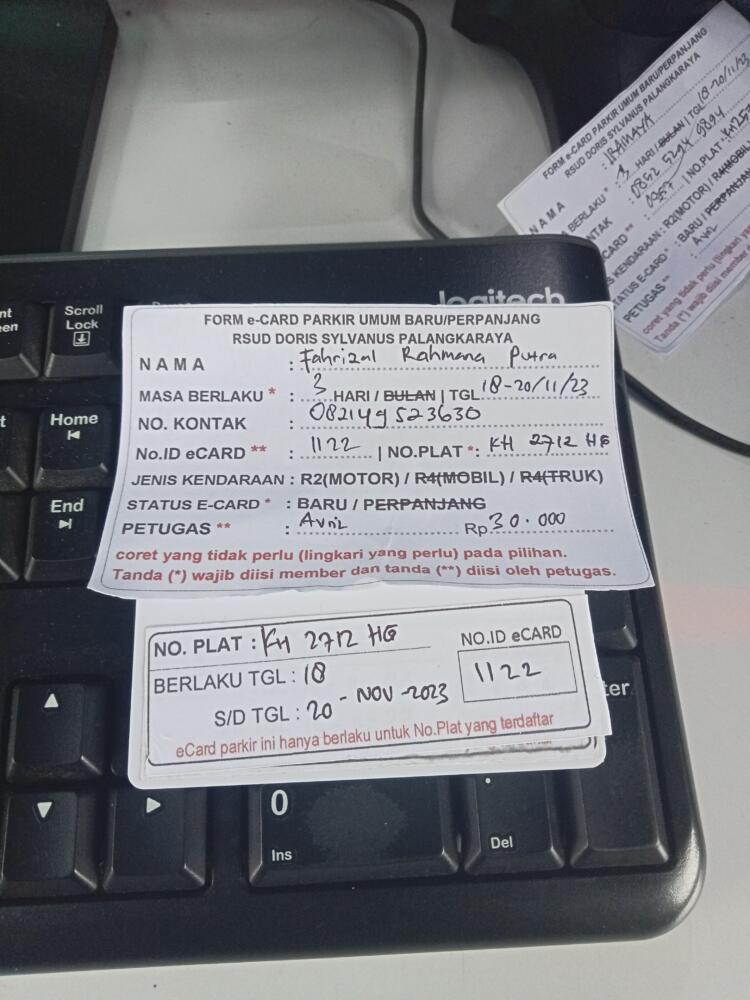 logitech
Scroll
Lock
Home
End
FORM e-CARD PARKIR UMUM BARU/PERPANJANG
RSUD DORIS SYLVANUS PALANGKARAYA
NAMA : Fahrizal Rahmana Putra
MASA BERLAKU * : 3 HARI / BULAN | TGL 18-20/11/23
NO. KONTAK : 082149523630
No.ID eCARD ** : 1122 | NO.PLAT *: KH 2712 HG
JENIS KENDARAAN : R2(MOTOR) / R4(MOBIL) / R4(TRUK)
STATUS E-CARD * : BARU / PERPANJANG
PETUGAS ** : Avril Rp 30.000
coret yang tidak perlu (lingkari yang perlu) pada pilihan.
Tanda (*) wajib diisi member dan tanda (**) diisi oleh petugas.
NO. PLAT : KH 2712 HG
NO.ID eCARD
1122
BERLAKU TGL : 18
S/D TGL : 20 - NOV - 2023
eCard parkir ini hanya berlaku untuk No.Plat yang terdaftar
0
Ins
.
Del
FORM e-CARD PARKIR UMUM BARU/PERPANJANG
RSUD DORIS SYLVANUS PALANGKARAYA
NAMA
BERLAKU * : 3 HARI / BULAN | TGL 18-20/11/23
NTAK : 0852 5294 9894
CARD ** | NO.PLAT
KENDARAAN : R2(MOTOR) / R4(MOBIL
TATUS E-CARD * : BARU / PERPANJAN
PETUGAS ** : Avril
coret yang tidak perlu (lingkari
Tanda (*) wajib diisi member